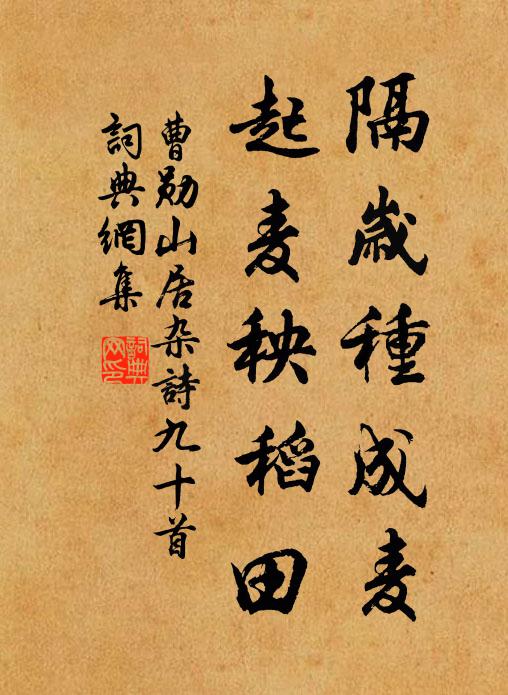 隔歲種成麦
起麦秧稻田
曹勛山居杂詩九十首
詞典網集
詞典网印